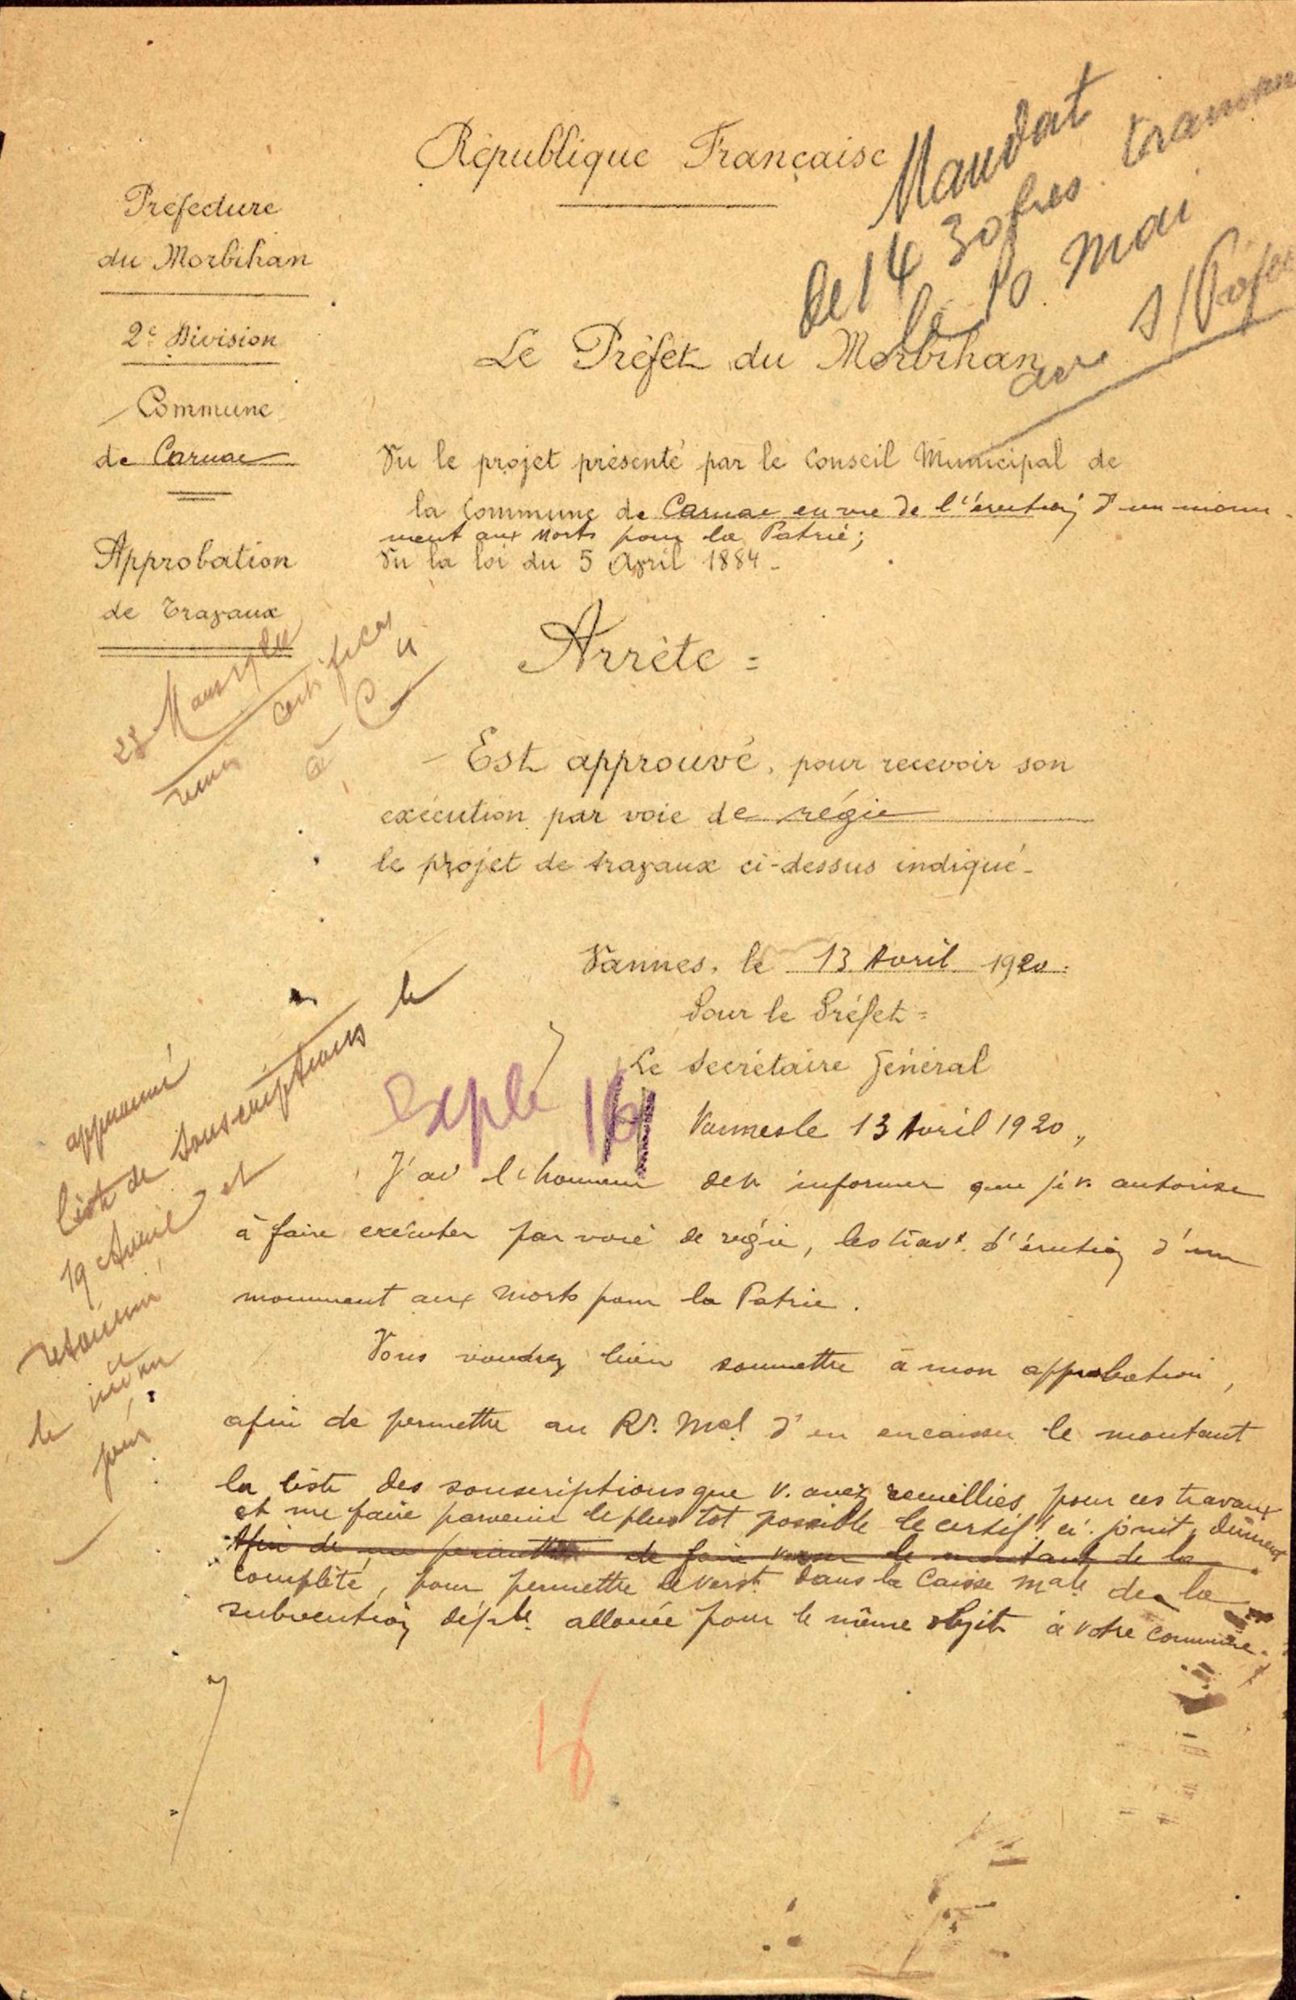 République Française
Mandat
de 1430 fres transm
le 10 mai
s/Préfe
Préfecture
du Morbihan
2e Division
Commune
de Carnac
Approbation
de Travaux
Le Préfet du Morbihan
Vu le projet présenté par le Conseil Municipal de
la Commune de Carnac en vue de l'érection d'un monu-
ment aux Morts pour la Patrie;
Vu la loi du 5 Avril 1884 -
Arrête =
certificat
à
Est approuvé, pour recevoir son
exécution par voie de régie
le projet de travaux ci-dessus indiqué -
Vannes, le 13 Avril 1920.
Pour le Préfet =
Le Secrétaire Général
approuvé
liste de souscriptions le
19 Avril et
le
jour
Expé 16
Vannes le 13 Avril 1920,
J'ai l'honneur de v. informer que je v. autorise
à faire exécuter par voie de régie, les travx. d'érection d'un
monument aux Morts pour la Patrie.
Vous voudrez bien soumettre à mon approbation,
afin de permettre au Rr. Mal d'en encaisser le montant
la liste des souscriptions que v. avez recueillies pour ces travaux
et me faire parvenir le plus tôt possible le certif. ci-joint, dûment
Afin de me permettre de faire verser le montant de la
complété, pour permettre le verst. dans la Caisse Male de la
subvention déple. allouée pour le même objet à votre commune.
16